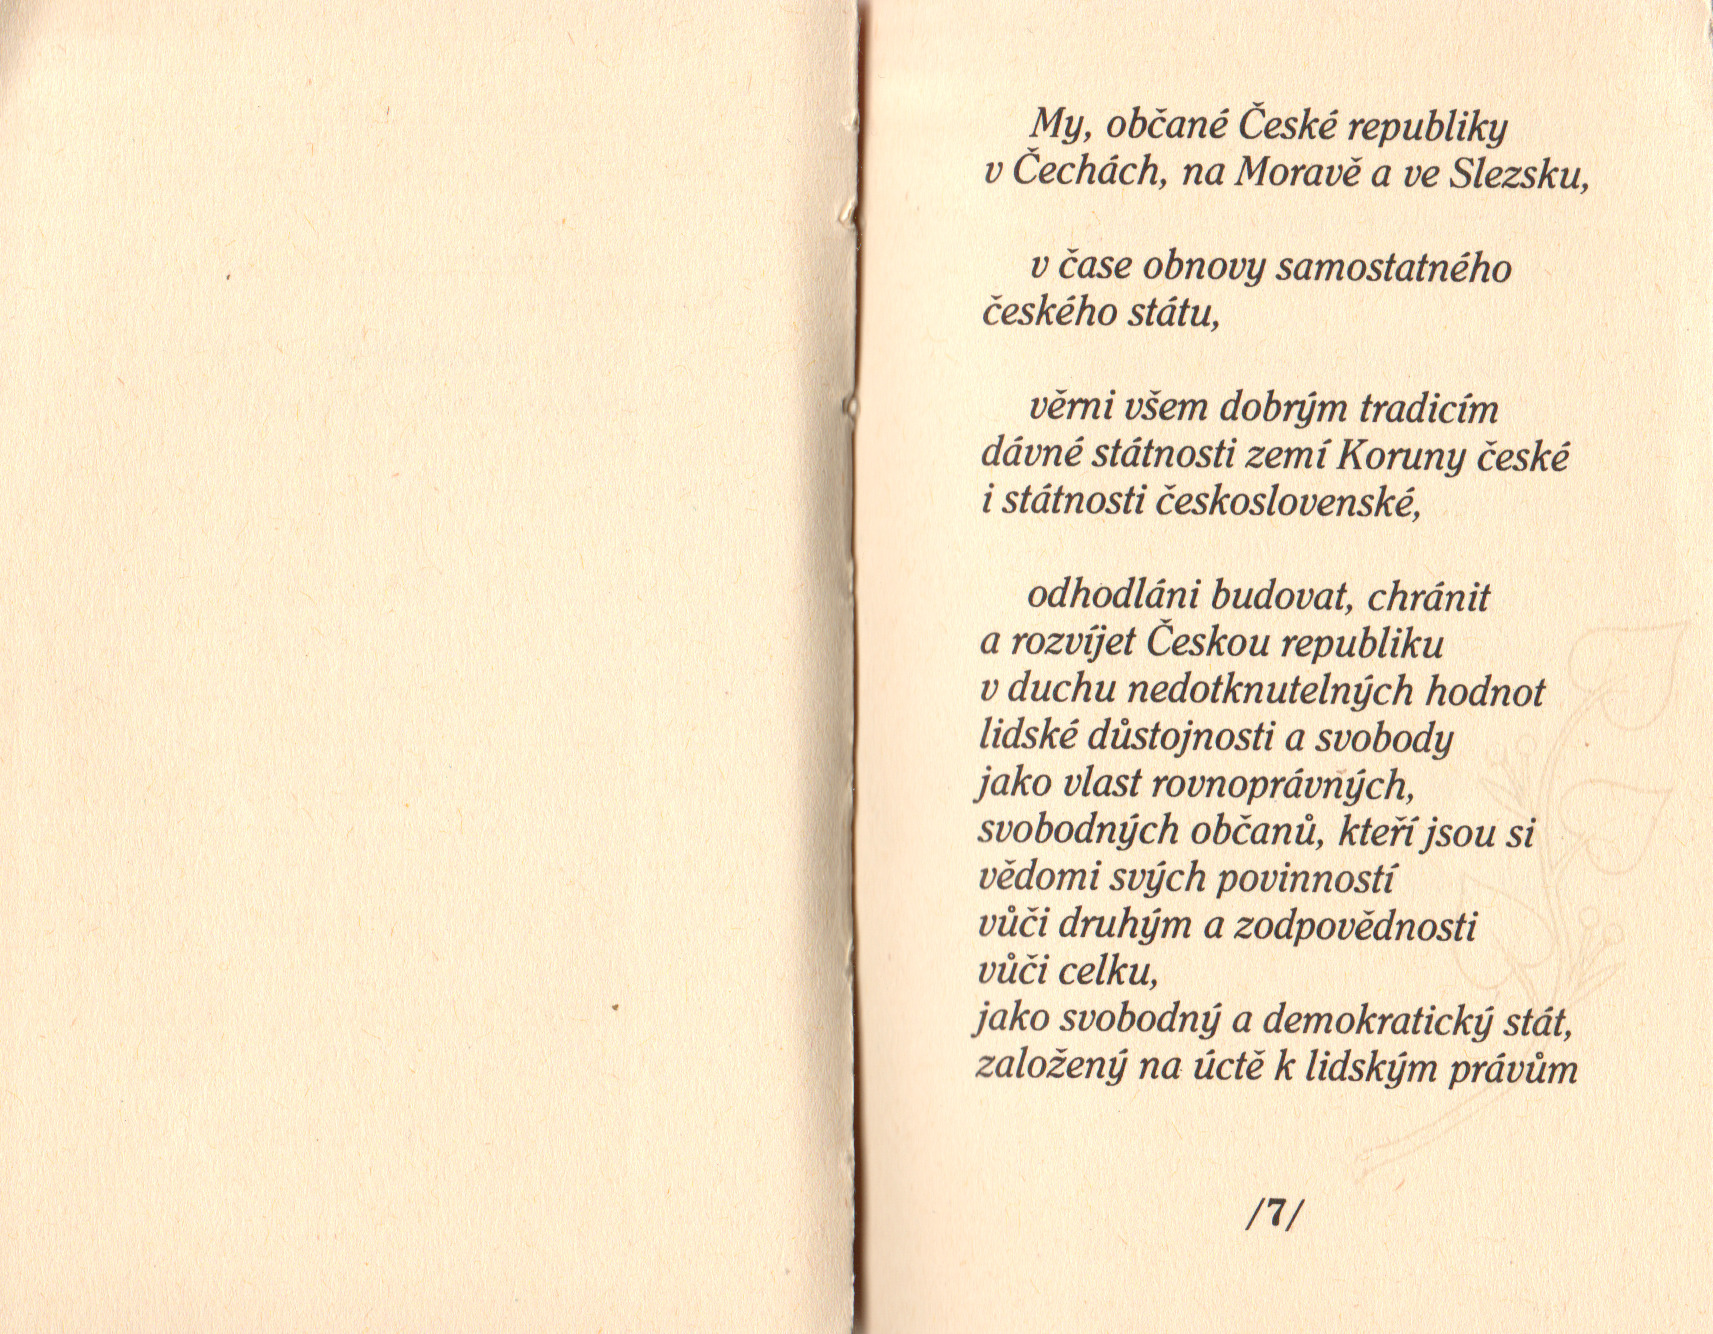 My, občané České republiky
v Čechách, na Moravě a ve Slezsku,
v čase obnovy samostatného
českého státu,
věrni všem dobrým tradicím
dávné státnosti zemí Koruny české
i státnosti československé,
odhodláni budovat, chránit
a rozvíjet Českou republiku
v duchu nedotknutelných hodnot
lidské důstojnosti a svobody
jako vlast rovnoprávných,
svobodných občanů, kteří jsou si
vědomi svých povinností
vůči druhým a zodpovědnosti
vůči celku,
jako svobodný a demokratický stát,
založený na úctě k lidským právům
/7/